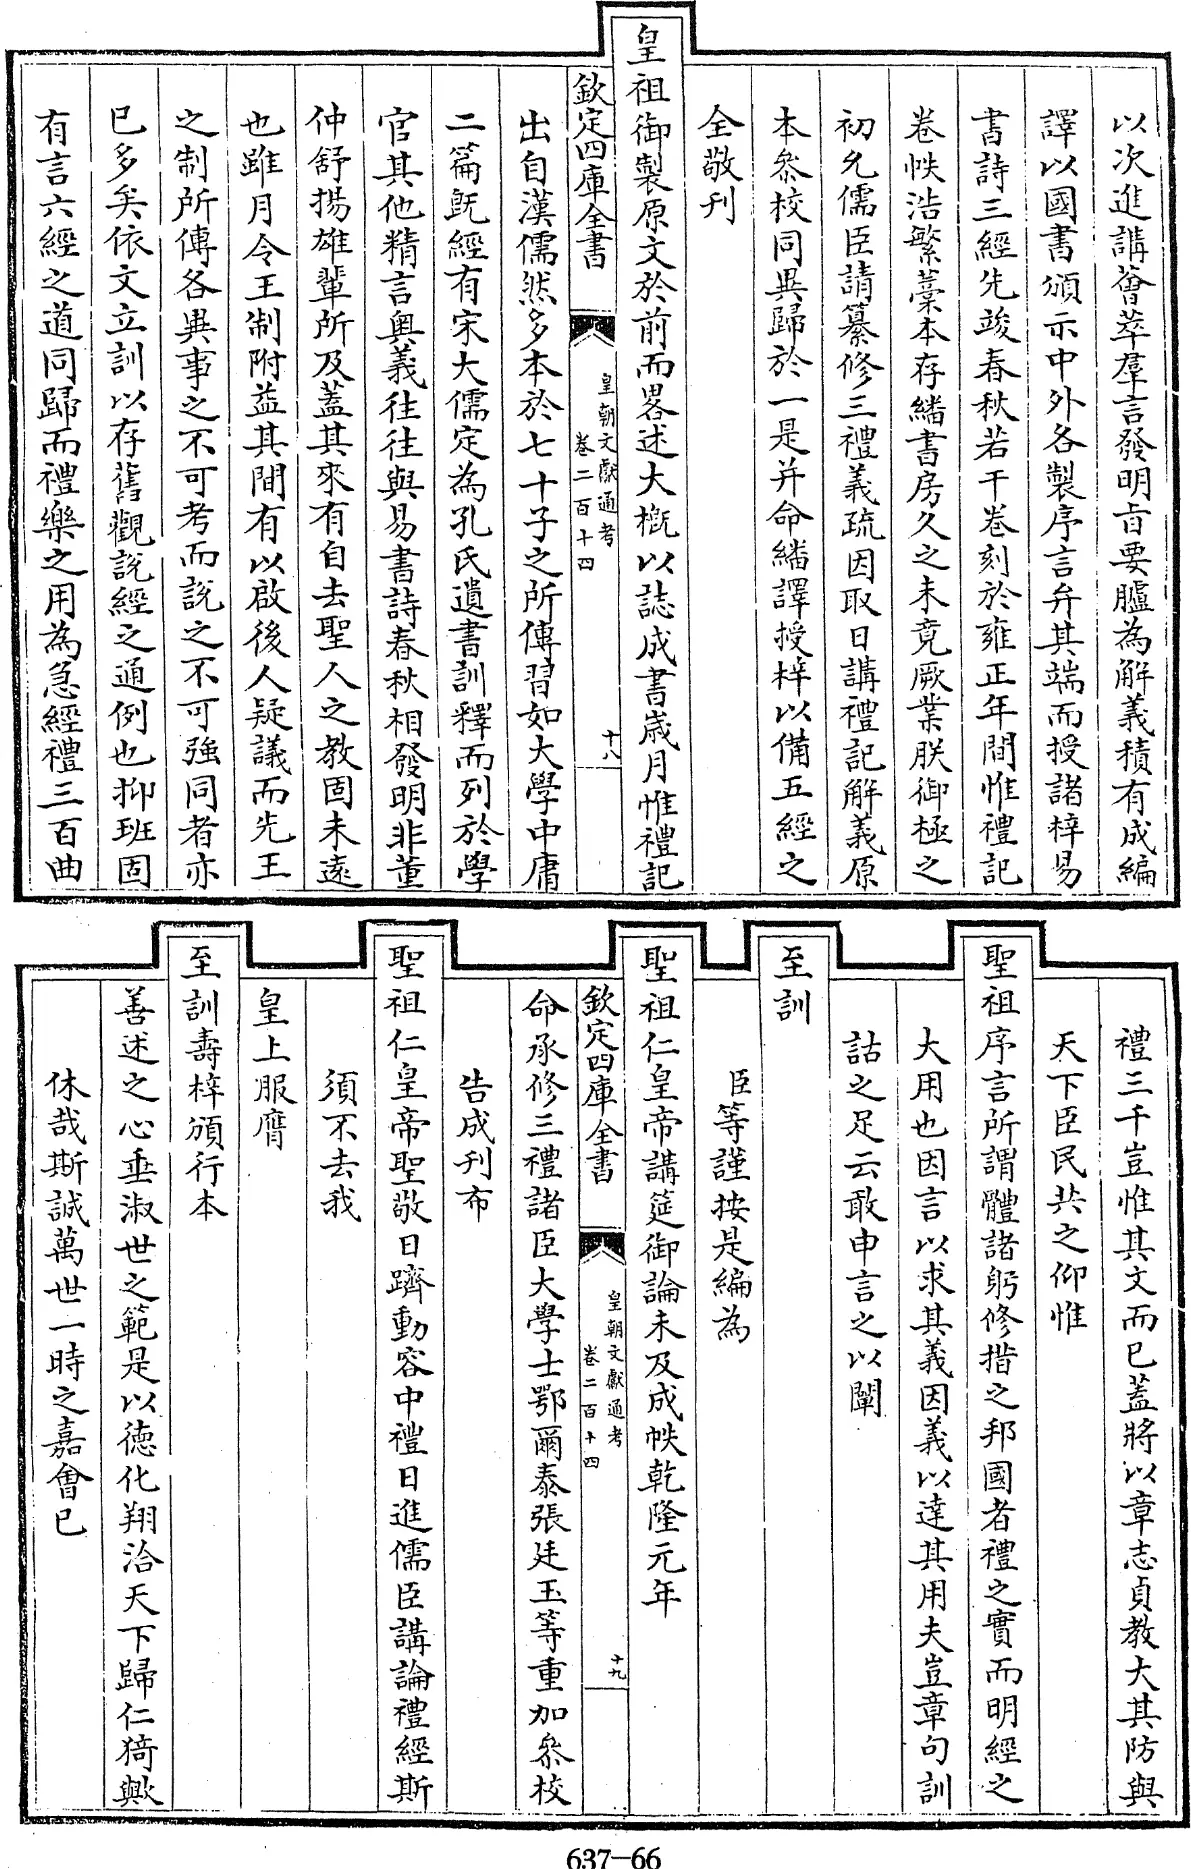 以次進講薈萃羣言發明㫖要臚為解義積有成編
譯以國書頒示中外各製序言弁其端而授諸梓易
書詩三經先竣春秋若干卷刻於雍正年間惟禮記
卷帙浩繁藁本存繙書房久之未竟厥業朕御極之
初允儒臣請纂修三禮義疏因取日講禮記解義原
本叅校同異歸於一是并命繙譯授梓以備五經之
全敬刊
皇祖御製原文於前而畧述大概以誌成書歲月惟禮記
欽定四庫全書
皇朝文獻通考
卷二百十四
十八
出自漢儒然多本於七十子之所傳習如大學中庸
二篇既經有宋大儒定為孔氏遺書訓釋而列於學
官其他精言奥義往往與易書詩春秋相發明非董
仲舒揚雄輩所及蓋其來有自去聖人之教固未遠
也雖月令王制附益其間有以啟後人疑議而先王
之制所傳各異事之不可考而說之不可強同者亦
已多矣依文立訓以存舊觀說經之通例也抑班固
有言六經之道同歸而禮樂之用為急經禮三百曲
禮三千豈惟其文而已蓋將以章志貞教大其防與
天下臣民共之仰惟
聖祖序言所謂體諸躬修措之邦國者禮之實而明經之
大用也因言以求其義因義以達其用夫豈章句訓
詁之足云敢申言之以闡
至訓
臣等謹按是編為
聖祖仁皇帝講筵御論未及成帙乾隆元年
欽定四庫全書
皇朝文獻通考
卷二百十四
十九
命承修三禮諸臣大學士鄂爾泰張廷玉等重加叅校
告成刊布
聖祖仁皇帝聖敬日躋動容中禮日進儒臣講論禮經斯
須不去我
皇上服膺
至訓壽梓頒行本
善述之心垂淑世之範是以德化翔洽天下歸仁猗歟
休哉斯誠萬世一時之嘉會已
637-66